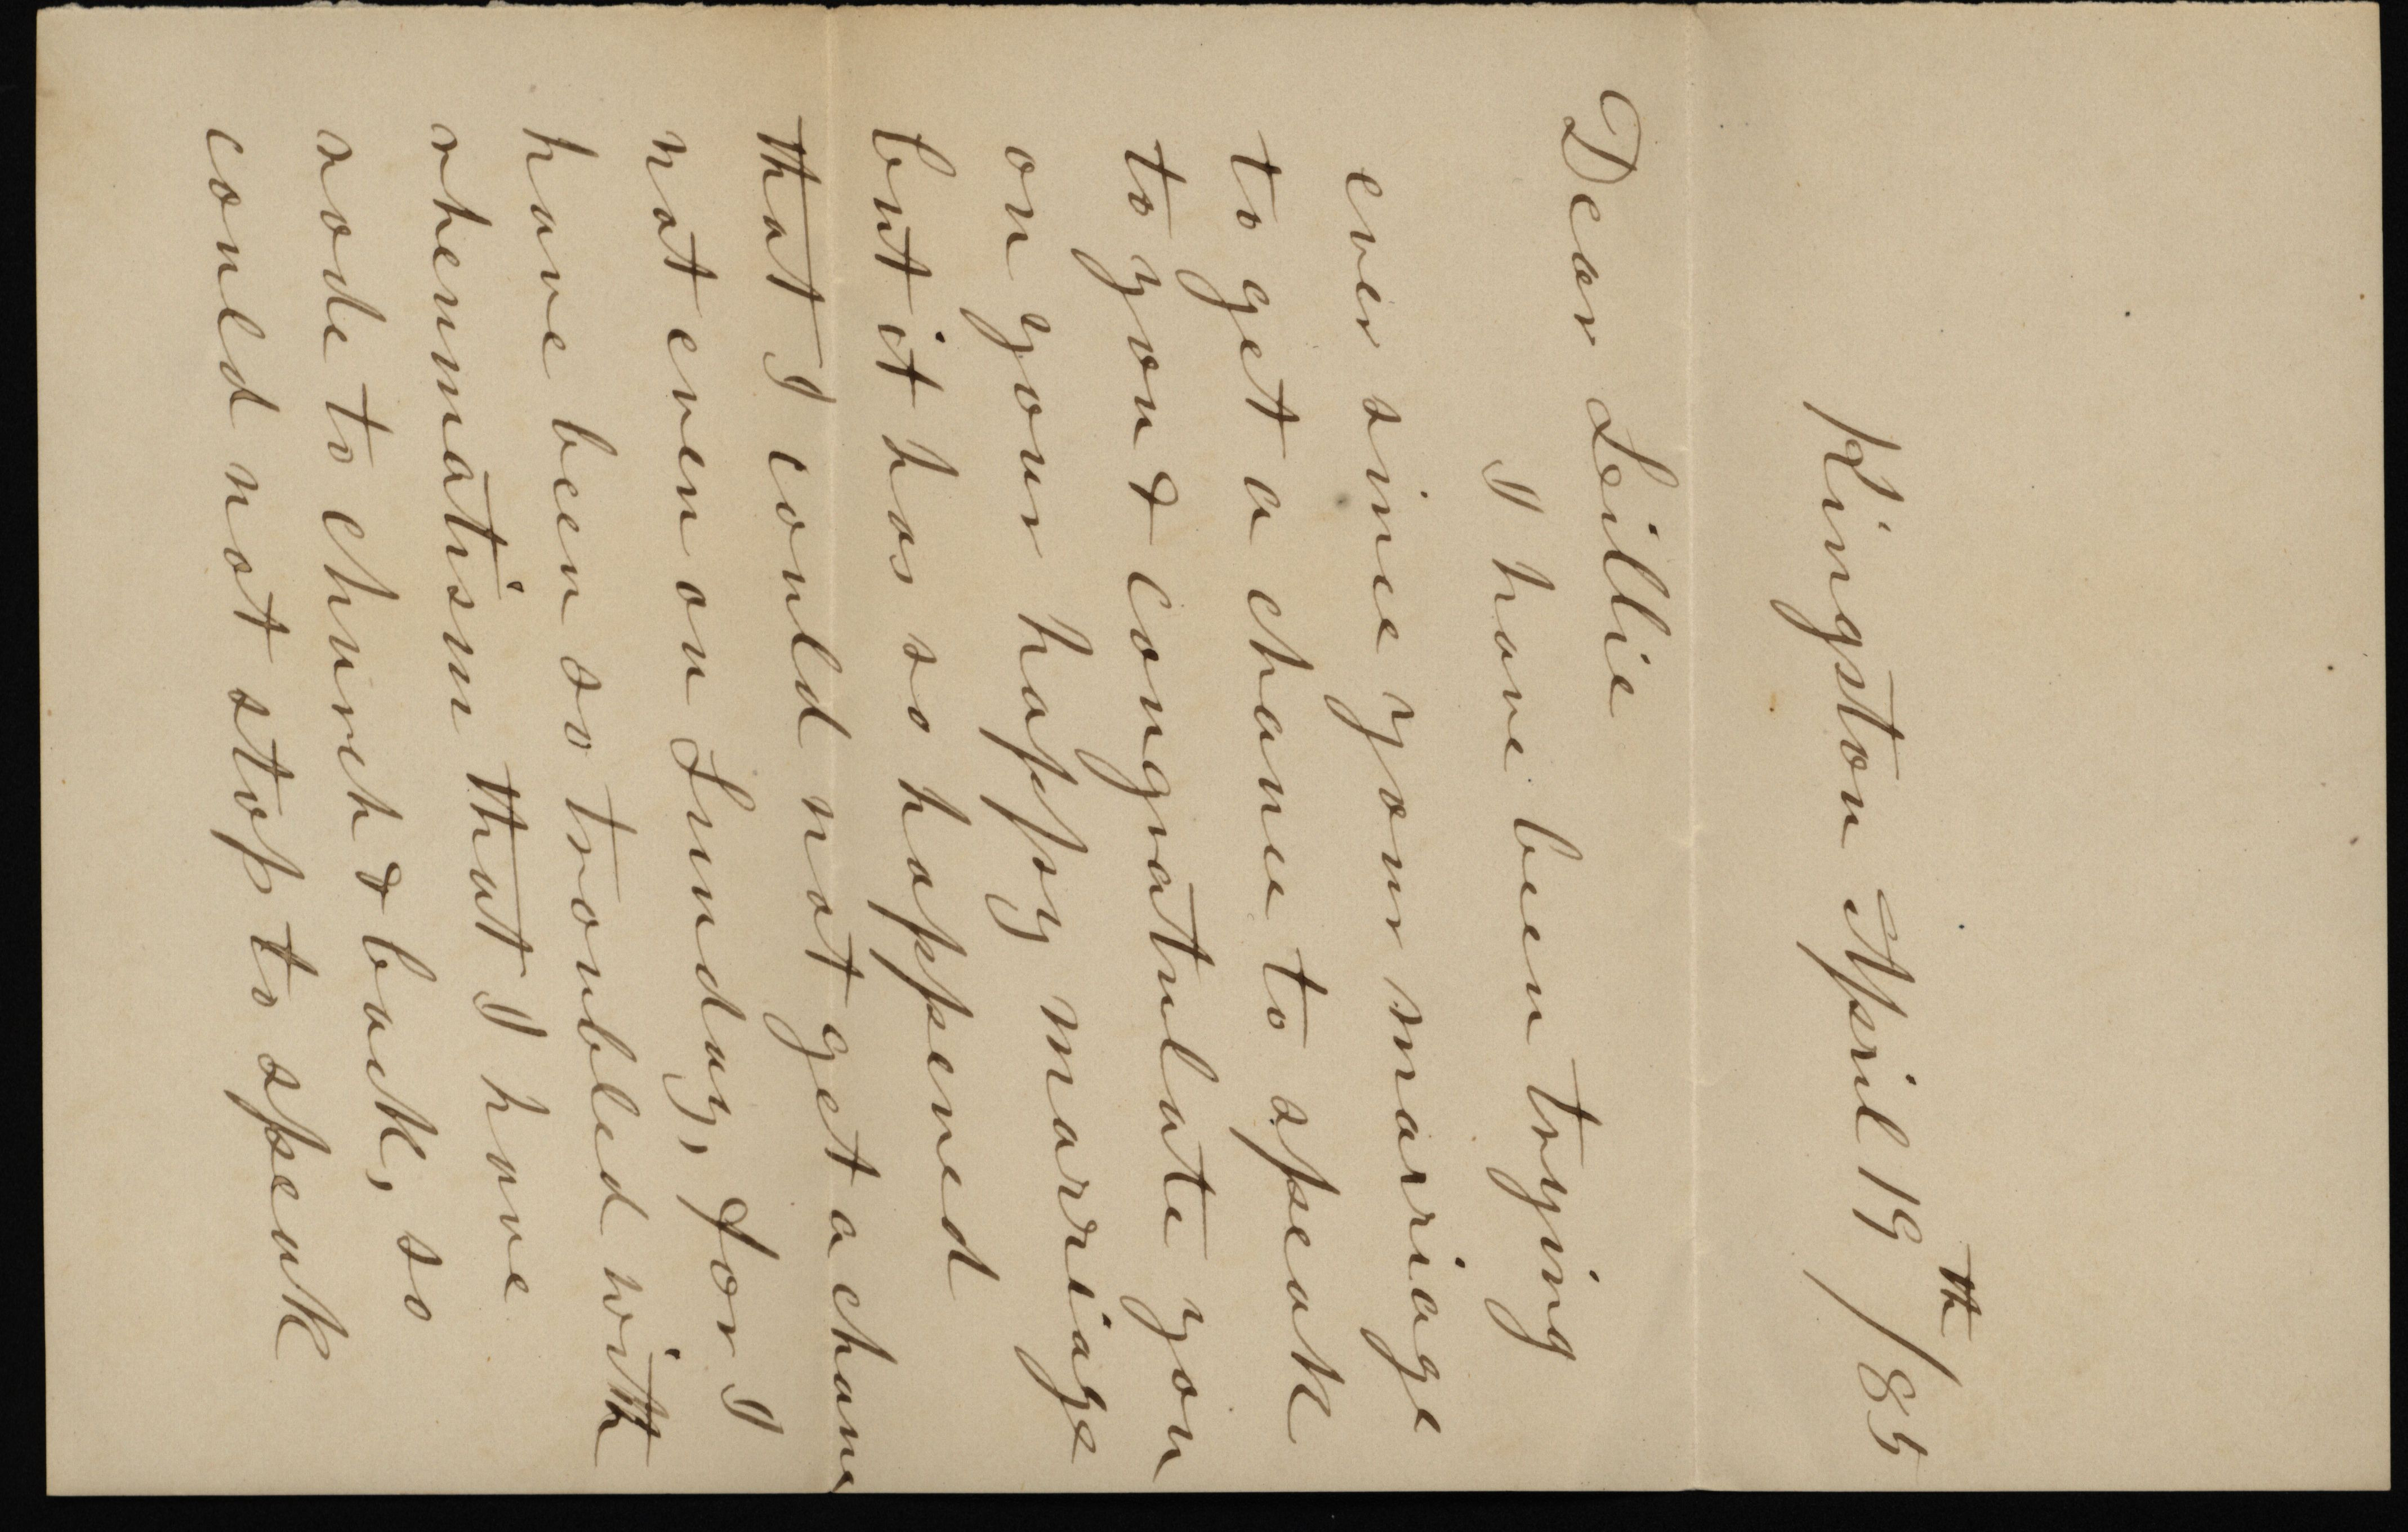 Kingston April 19th/85
Dear Leillie
I have been trying
ever since your marriage
to get a chance to speak
to you & congratulate you
on your happy marriage
but it has so happened
that I could not get a chance
not even on Sunday, for I
have been so troubled with
rheumatism that I have
rode to church & back, so
could not stop to speak